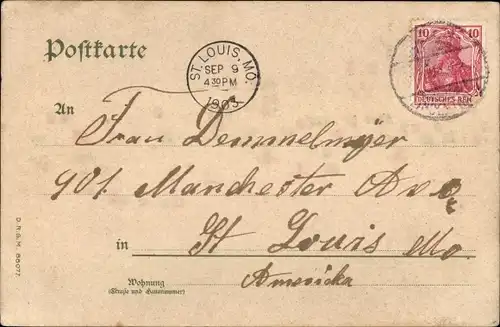 Postkarte
ST. LOUIS, MO.
SEP 9
4 30 PM
1903
10 10
DEUTSCHES REICH
An
Frau Demmelmeyer
901 Manchester Ave
in St Louis Mo.
Amerika
Wohnung
(Straße und Hausnummer)
D.R.G.M. 88077.